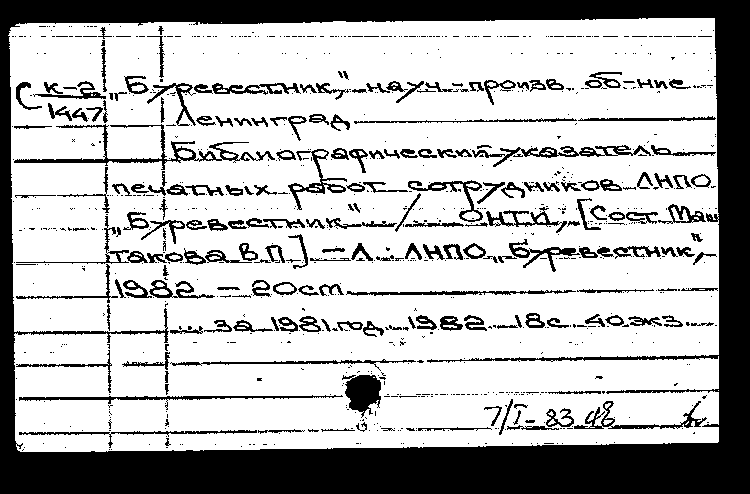 С к-2 „Буревестник“, науч.-произв. об-ние
1447 Ленинград
Библиографический указатель
печатных работ сотрудников ЛНПО
„Буревестник“ ... / ... ОНТИ; [Сост. Маш
такова В.П.] — Л.: ЛНПО „Буревестник“,
1982 – 20см.
... за 1981 год. 1982 18с 40экз.
7/I-83